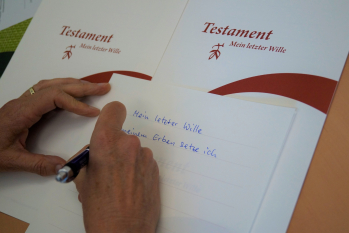 Testament
Mein letzter Wille
Testament
Mein letzter Wille
Mein letzter Wille
meinem Erben setze ich